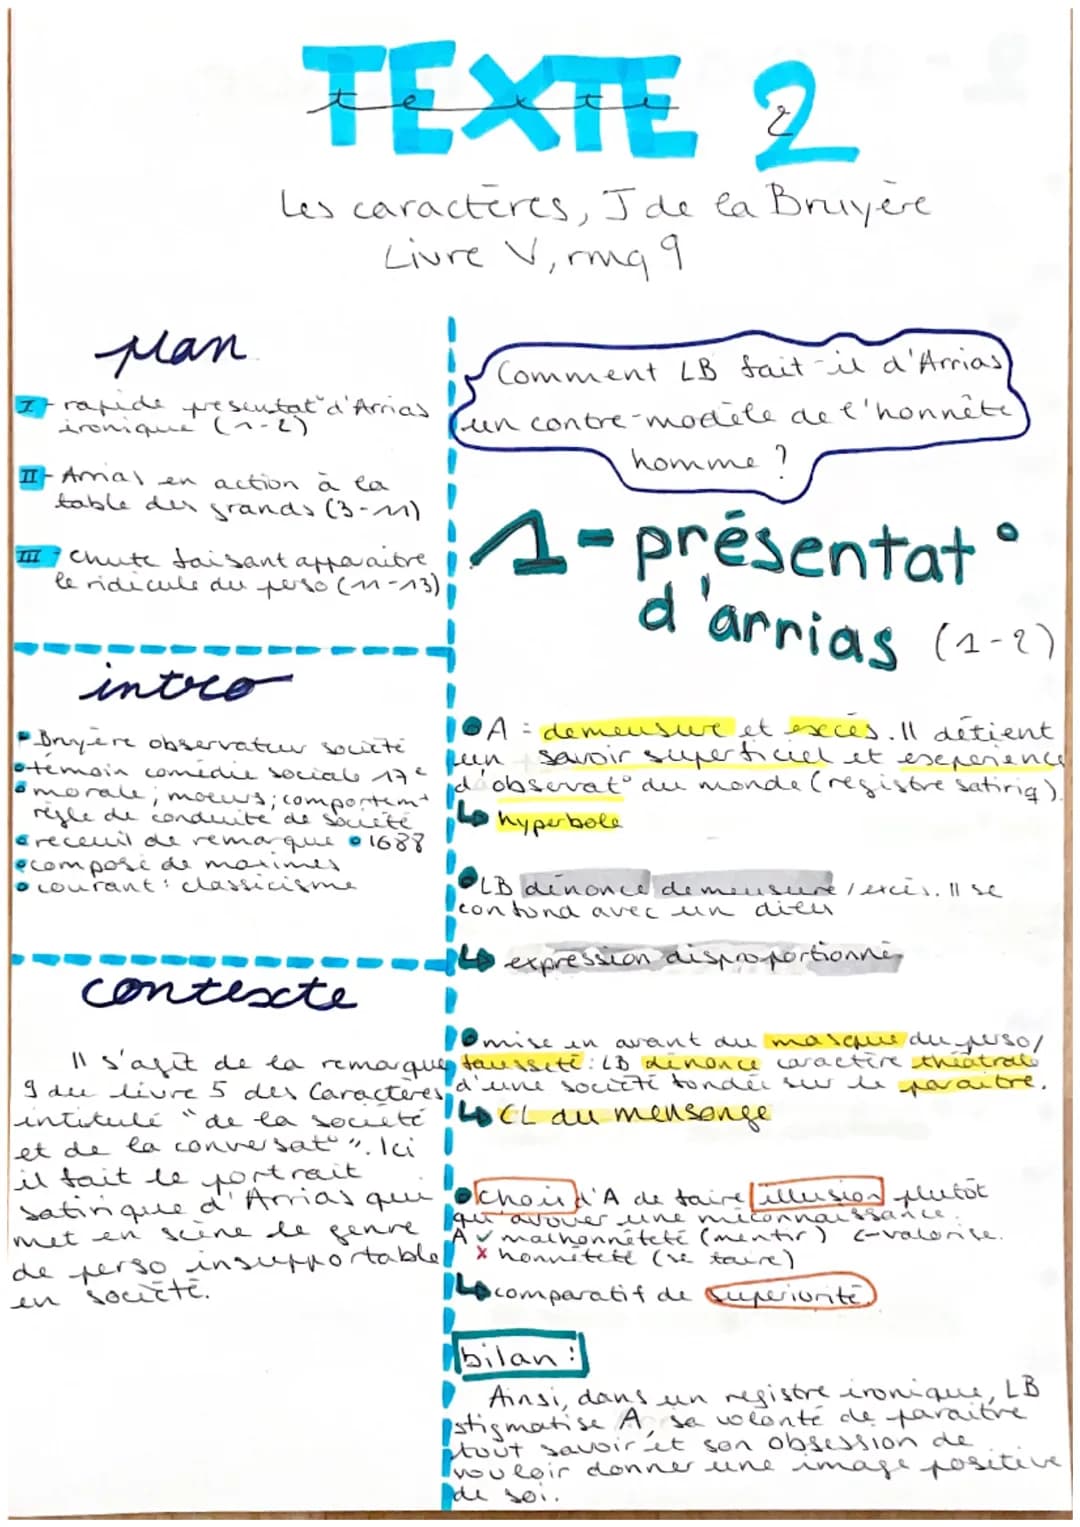 TEXTE 2
texte 2
Les caractères, J de la Bruyère
Livre V, rmq 9
plan
I - rapide présentat° d'Arrias
ironique (1-2)
II - Arrias en action à la
table des grands (3-11)
III - chute faisant apparaitre
le ridicule du perso (11-13)
intro
Bruyère observateur société
témoin comédie sociale 17e
morale; moeurs; comportemt
règle de conduite de société
receuil de remarque • 1688
composé de maximes
courant : classicisme
contexte
Il s'agit de la remarque
9 du livre 5 des Caractères
intitulé "de la société
et de la conversat°". Ici
il fait le portrait
satirique d'Arrias qui
met en scène le genre
de perso insupportable
en société.
Comment LB fait-il d'Arrias
un contre-modèle de l'honnête
homme ?
1- présentat°
d'arrias (1-2)
A = demeusure et excès. Il détient
un savoir superficiel et expérience
d'observat° du monde (registre satiriq)
↳ hyperbole
LB dénonce demeusure / excès. Il se
confond avec un dieu
↳ expression disproportionné
mise en avant du masque du perso/
fausseté : LB dénonce caractère théâtrale
d'une société fondée sur le paraitre.
↳ CL du mensonge
choix d'A de faire illusion plutôt
qu'avouer une méconnaissance.
A ✓ malhonnêteté (mentir) ←valorise.
× honnêteté (se taire)
↳ comparatif de superiorité
bilan :
Ainsi, dans un registre ironique, LB
stigmatise A, sa volonté de paraitre
tout savoir et son obsession de
vouloir donner une image positive
de soi.